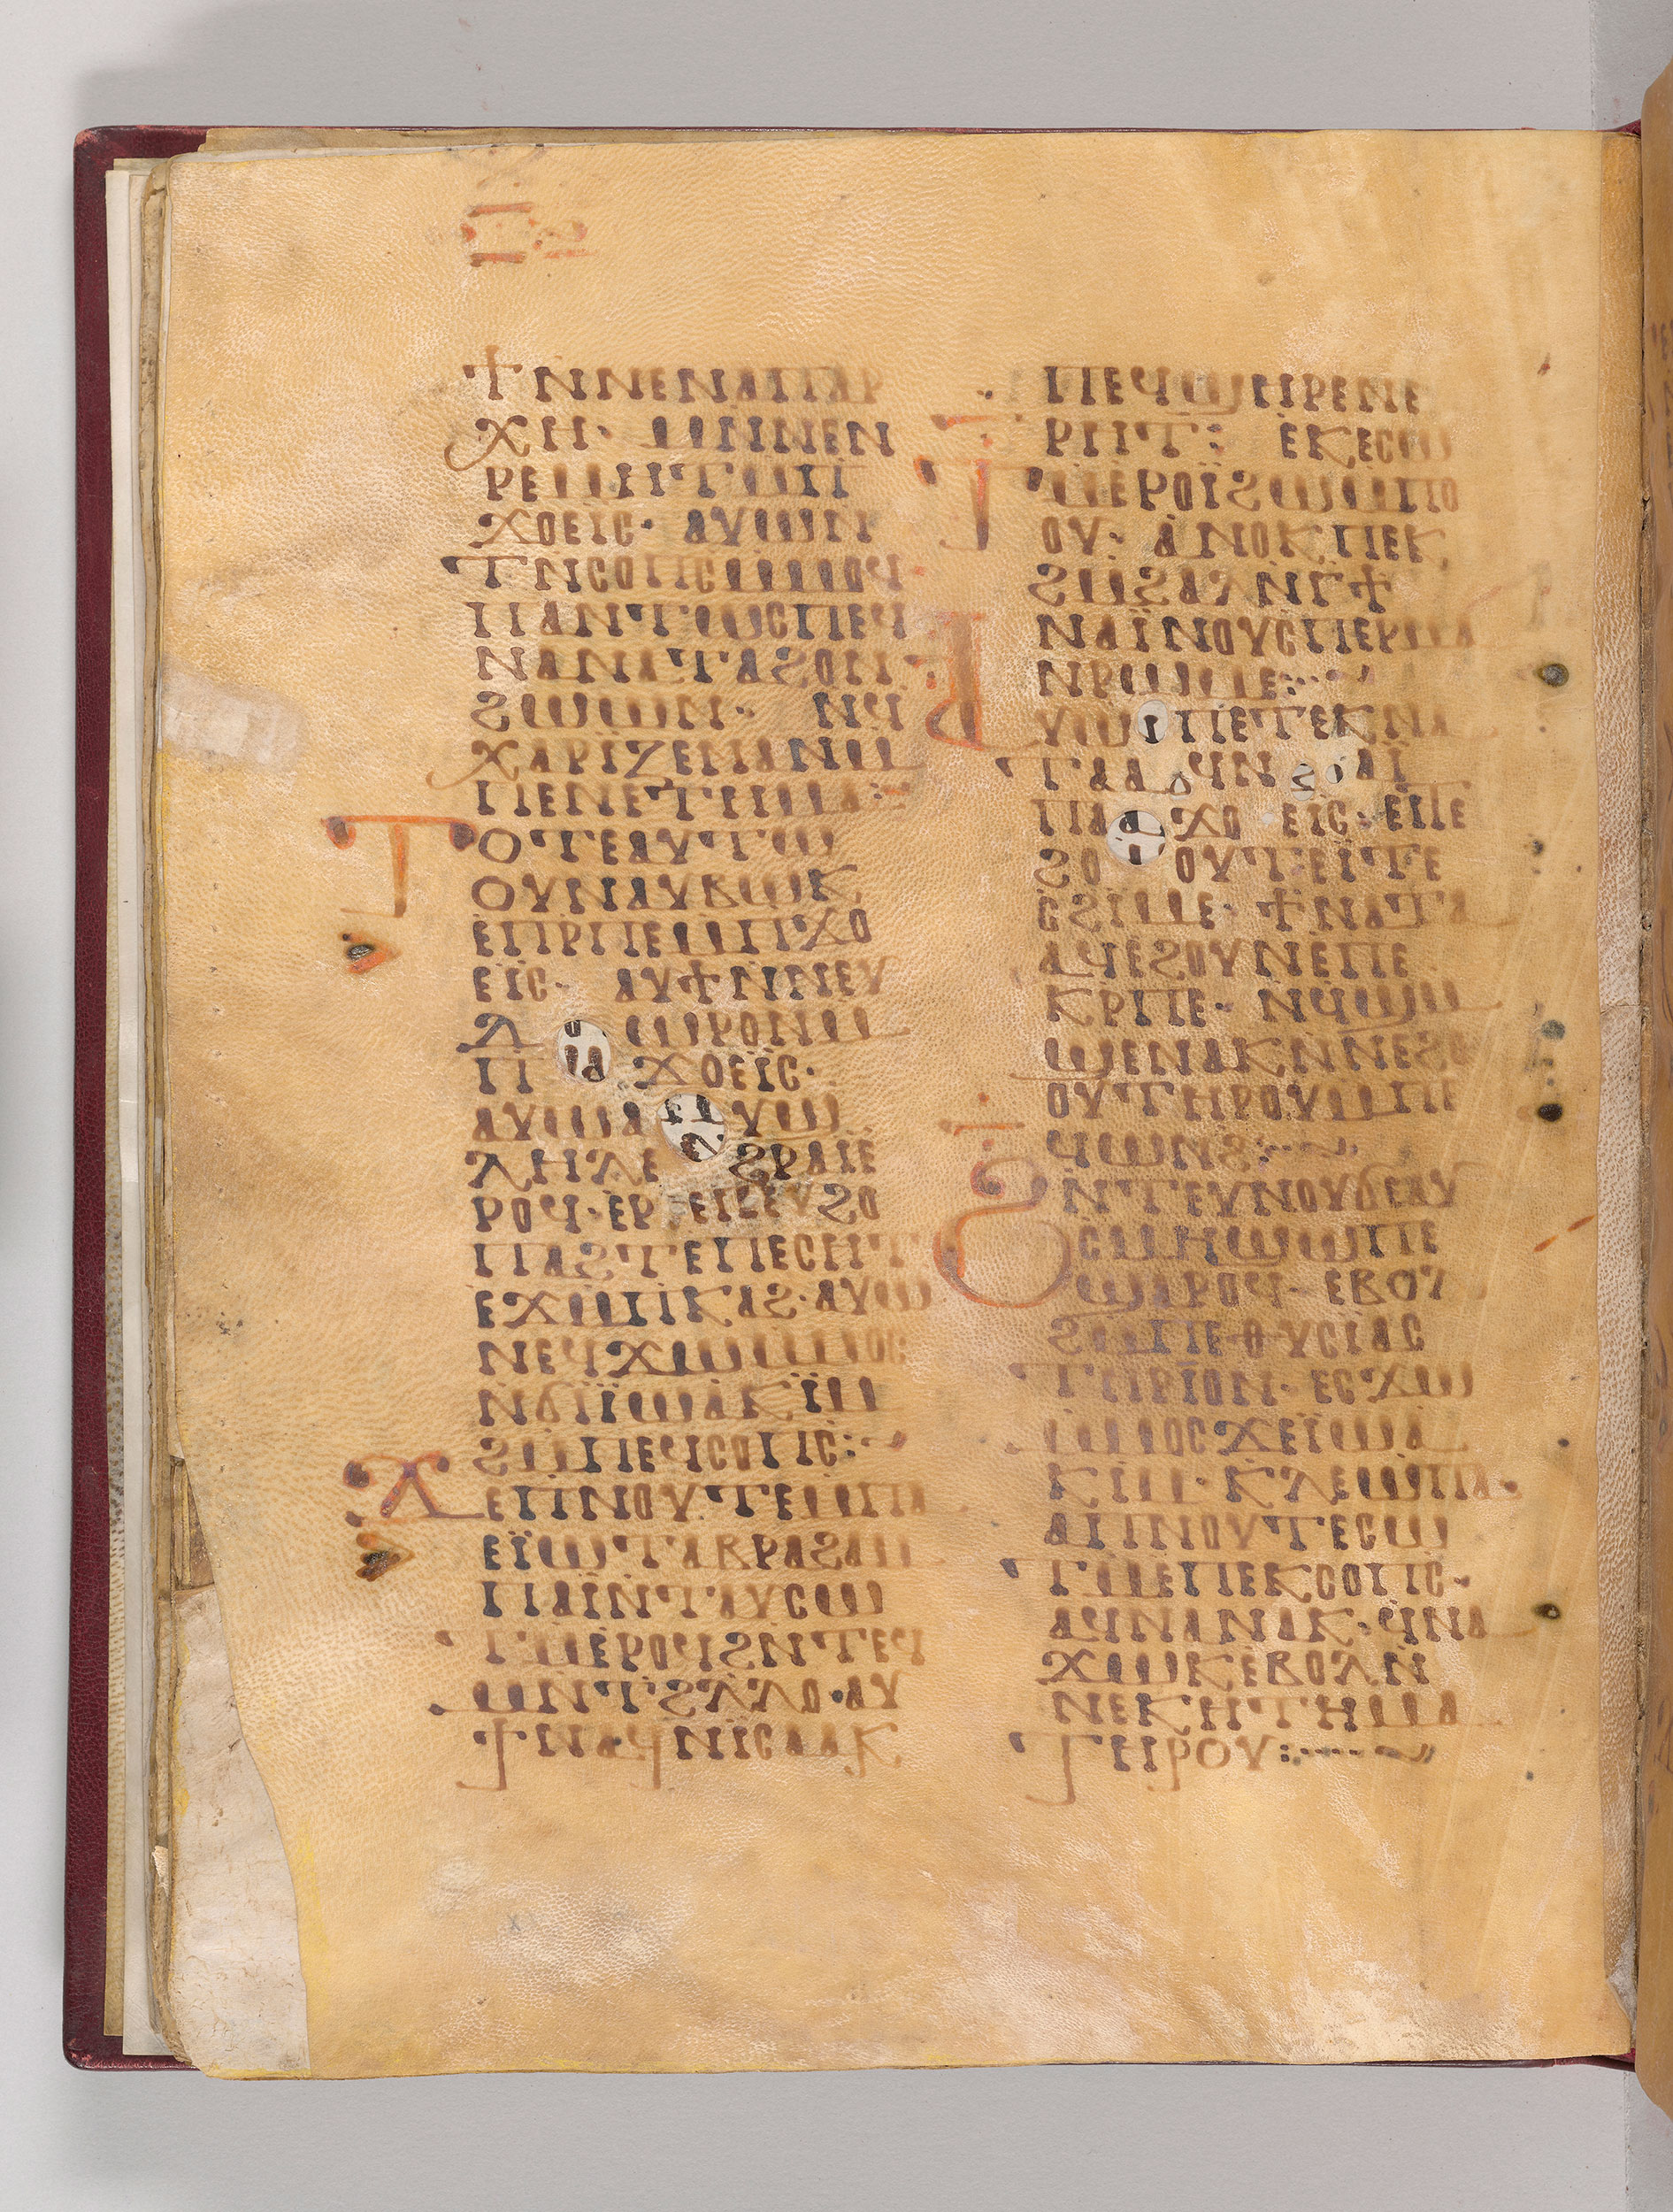 ϯⲛⲛⲉⲛⲁⲡⲁⲣ
ⲭⲏ· ⲙⲛⲛⲉⲛ
ⲣⲉⲙⲏⲧⲙⲡ
ϫⲟⲉⲓⲥ· ⲁⲩⲱⲛ
ⲧⲛⲥⲟⲡⲥⲙⲙⲟϥ·
ⲡⲁⲛⲧⲱⲥⲡⲉϥ
ⲛⲁⲛⲁⲧⲁϩⲟⲛ
ϩⲱⲱⲛ· ⲛϥ
ⲭⲁⲣⲓⲍⲉⲛⲁⲛⲙ
ⲡⲉⲛⲉⲧⲏⲙⲁ:
ⲧⲟⲧⲉⲁⲩⲧⲱ
ⲟⲩⲛⲁⲩⲃⲱⲕ
ⲉⲡⲣⲡⲉⲙⲡϫⲟ
ⲉⲓⲥ· ⲁⲩϯⲛⲛⲉⲩ
ⲇⲱⲣⲟⲛⲙ
ⲡ ϫⲟⲉⲓⲥ·
ⲁⲩⲱⲁⲩϣ
ⲗⲏⲗⲉϩⲣⲁⲓⲉ
ⲣⲟϥ·ⲉⲣⲉⲡⲉⲩϩⲟ
ⲡⲁϩⲧⲉⲡⲉⲥⲏⲧ
ⲉϫⲙⲡⲕⲁϩ·ⲁⲩⲱ
ⲛⲉϥϫⲱⲙⲙⲟⲥ
ⲛϭⲓⲓⲱⲁⲕⲓⲙ
ϩⲙⲡⲉϥⲥⲟⲡⲥ:
ϫⲉⲡⲛⲟⲩⲧⲉⲙⲡⲁ
ⲉⲓⲱⲧⲁⲃⲣⲁϩⲁⲙ
ⲡⲁⲓⲛⲧⲁⲩⲥⲱ
ⲧⲙⲉⲣⲟϥϩⲛⲧⲉϥ
ⲙⲛⲧϩⲗⲗⲟ·ⲁⲩ
ϯⲛⲁϥⲛⲓⲥⲁⲁⲕ
ⲡⲉϥϣⲏⲣⲉⲙⲙⲉ
ⲣⲓⲧ: ⲉⲕⲉⲥⲱ
ⲧⲙⲉⲣⲟⲓϩⲱⲱⲡⲟ
ⲟⲩ· ⲁⲛⲟⲕⲡⲉⲕ
ϩⲙϩⲁⲗⲛⲅϯ
ⲛⲁⲓⲛⲟⲩⲥⲡⲉⲣⲙⲁ
ⲛⲣⲱⲙⲉ:
ⲁⲩⲱⲡⲉⲧⲉⲕⲛⲁ
ⲧⲁⲁϥⲛⲁⲓ
ⲡⲁϫⲟ ⲉⲓⲥ·ⲉⲓⲧⲉ
ϩⲟⲟⲩⲧ·ⲉⲓⲧⲉ
ⲥϩⲓⲙⲉ· ϯⲛⲁⲧⲁ
ⲁϥⲉϩⲟⲩⲛⲉⲡⲉ
ⲕⲣⲡⲉ· ⲛϥϣⲙ
ϣⲉⲛⲁⲕⲛⲛⲉϩⲟ
ⲟⲩⲧⲏⲣⲟⲩⲙⲡⲉ
ϥⲱⲛϩ:
ϩⲛⲧⲉⲩⲛⲟⲩϭⲉⲁⲩ
ⲥⲙⲏϣⲱⲡⲉ
ϣⲁⲣⲟϥ· ⲉⲃⲟⲗ
ϩⲙⲡⲉⲑⲩⲥⲓⲁⲥ
ⲧⲏⲣⲓⲟⲛ· ⲉⲥϫⲱ
ⲙⲙⲟⲥϫⲉⲓⲱⲁ
ⲕⲓⲙ·ⲕⲗⲉⲱⲡⲁ·
ⲁⲡⲛⲟⲩⲧⲉⲥⲱ
ⲧⲙⲉⲡⲉⲕⲥⲟⲡⲥ·
ⲁϥⲛⲁⲛⲁⲕ·ϥⲛⲁ
ϫⲱⲕⲉⲃⲟⲗⲛ
ⲛⲉⲕⲏⲧⲏⲙⲁ
ⲧⲏⲣⲟⲩ: